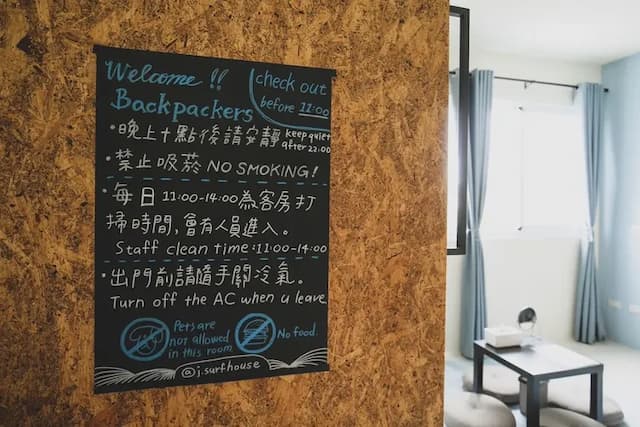 Welcome !!
Backpackers
check out
before 11:00
・晚上十點後請安靜 keep quiet after 22:00
・禁止吸菸 NO SMOKING!
・每日11:00-14:00為客房打
掃時間,會有人員進入。
Staff clean time:11:00-14:00
・出門前請隨手關冷氣。
Turn off the AC when u leave
Pets are
not allowed
in this room
No food.
@j.surfhouse